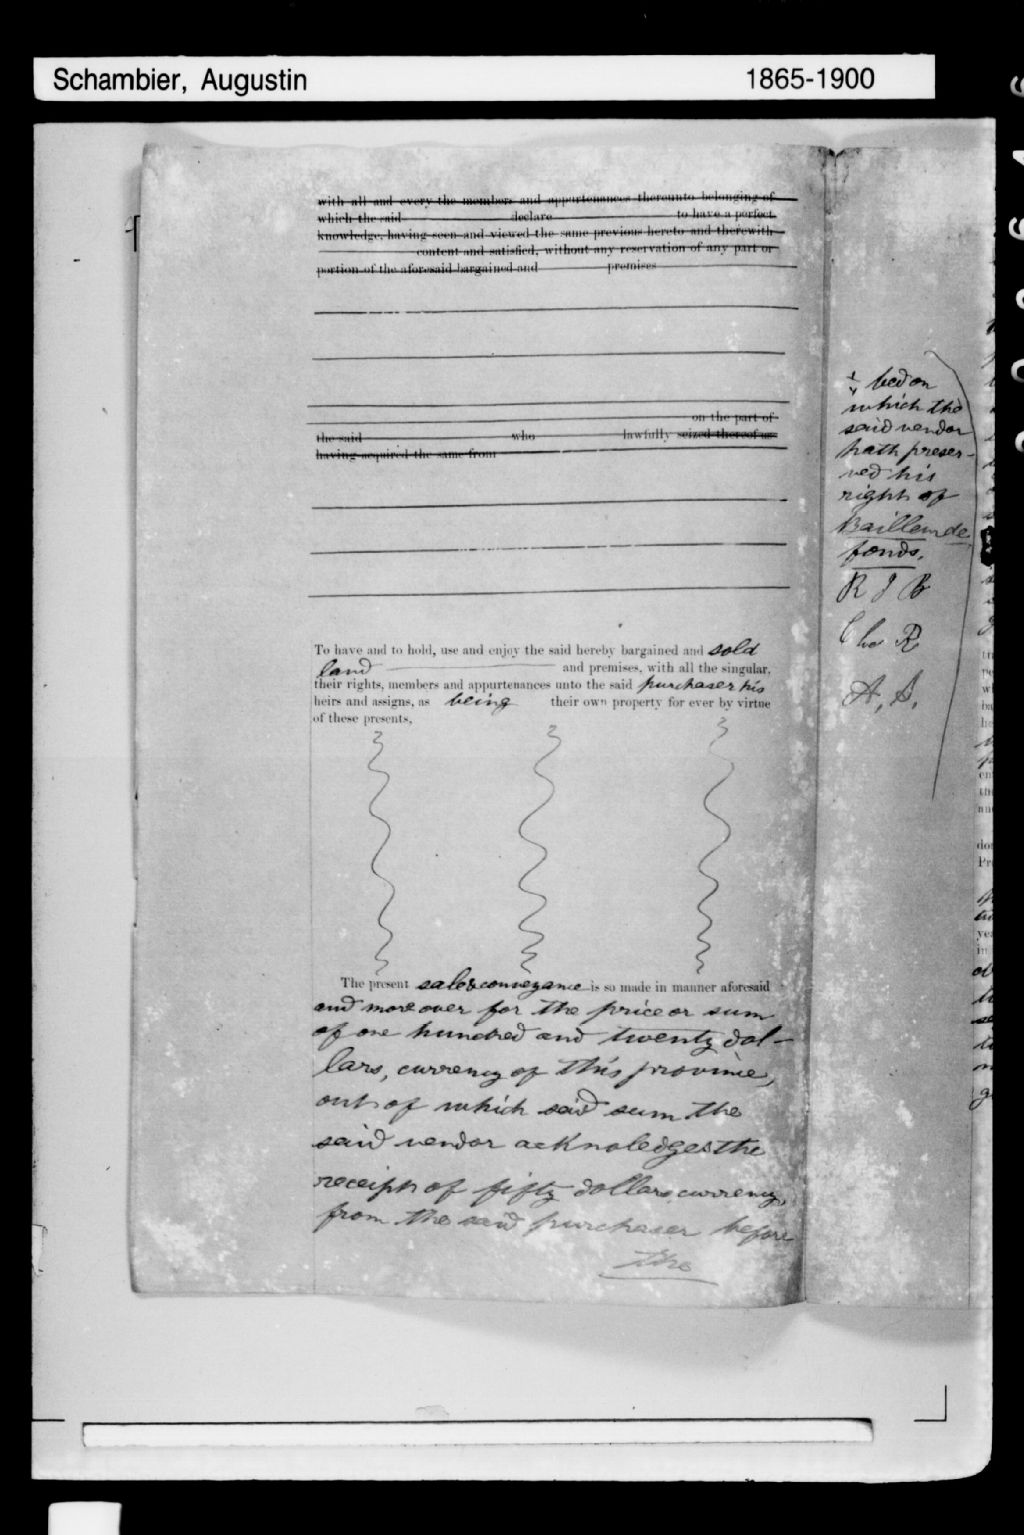 Schambier, Augustin 1865-1900
with all and every the members and appurtenances thereunto belonging of
which the said declare to have a perfect
knowledge, having seen and viewed the same previous hereto and therewith
content and satisfied, without any reservation of any part or
portion of the aforesaid bargained and premises
on the part of
the said who lawfully seized thereof as
having acquired the same from
To have and to hold, use and enjoy the said hereby bargained and sold
land and premises, with all the singular,
their rights, members and appurtenances unto the said purchaser his
heirs and assigns, as being their own property for ever by virtue
of these presents,
The present sale & conveyance is so made in manner aforesaid
and moreover for the price or sum
of one hundred and twenty dol-
lars, currency of this province,
out of which said sum the
said vendor acknoledges the
receipt of fifty dollars currency,
from the said purchaser before
the
which the
said vendor
hath preser-
ved his
right of
Bailleur de
fonds.
R J B
Chs R
A. S.